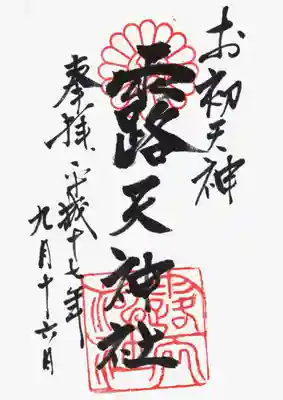 お初天神
露天神社
奉拝
平成十七年
九月十六日